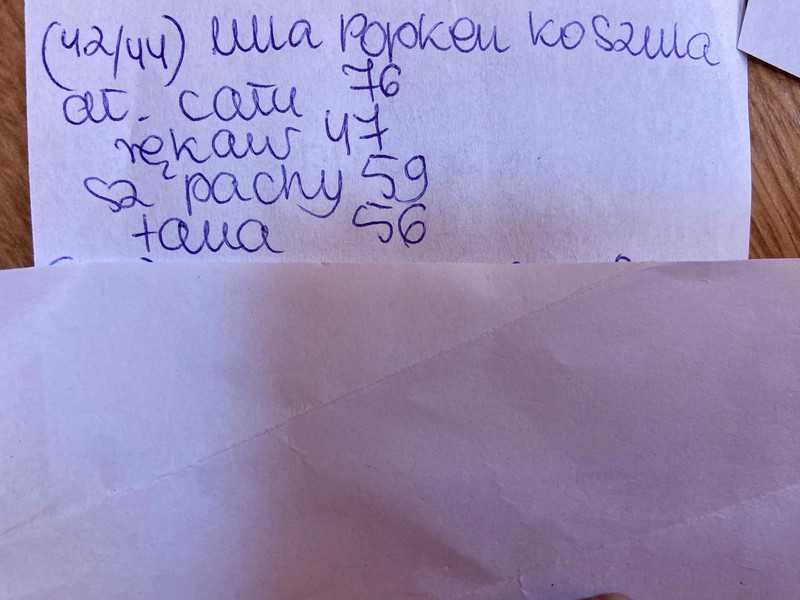 (42/44) Ulla Popken koszula
dł. całk. 76
rękaw 47
sz pachy 59
talia 56